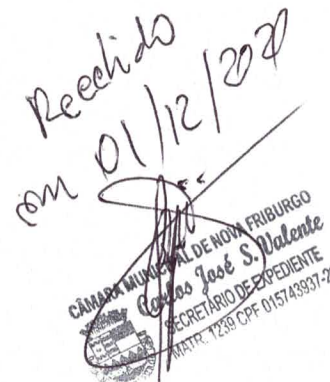 Recebido
em 01/12/2020
CÂMARA MUNICIPAL DE NOVA FRIBURGO
Carlos José S. Valente
SECRETÁRIO DE EXPEDIENTE
MATR. 1239 CPF 015743937-2